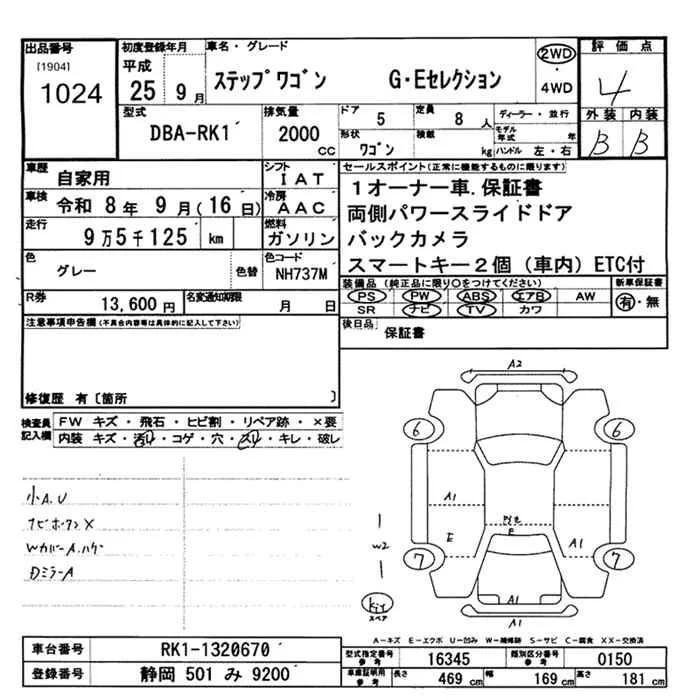 出品番号
[1904]
1024
初度登録年月
平成
25 9月
車名・グレード
ステップワゴン G・Eセレクション
2WD
・
4WD
評価点
4
外装 内装
B B
型式
DBA-RK1
排気量
2000
CC
ドア
5
定員
8人
形状
ワゴン
積載
kg
ディーラー・並行
モデル年式 年
ハンドル 左・右
車歴
自家用
シフト
IAT
車検
令和 8年 9月(16日)
冷房
AAC
走行
9万5千125 km
燃料
ガソリン
色
グレー
色替
色コード
NH737M
R券
13,600円
名変通知期限
月 日
セールスポイント(正常に機能するものに限ります)
1オーナー車.保証書
両側パワースライドドア
バックカメラ
スマートキー2個(車内)ETC付
装備品(純正品に限り○をつけてください)
PS PW ABS エアB AW
SR ナビ TV カワ
新車保証書
有・無
後日品
保証書
注意事項申告欄(不具合内容等は具体的に記入して下さい)
修復歴 有〔箇所 〕
検査員
記入欄
FW キズ・飛石・ヒビ割・リペア跡・×要
内装 キズ・汚れ・コゲ・穴・スレ・キレ・破レ
小A.U
ナビボタンX
WカバーA.ハゲ
DミラーA
A2
6
6
A1
E
E
A1
W2
7
7
A1
A1
スペア
A-キズ E-エクボ U-凹み W-補修跡 S-サビ C-腐食 XX-交換済
車台番号
RK1-1320670
登録番号
静岡 501 み 9200
型式指定番号
参考
16345
類別区分番号
参考
0150
車庫証明用
参考
長さ
469 cm
幅
169 cm
高さ
181 cm